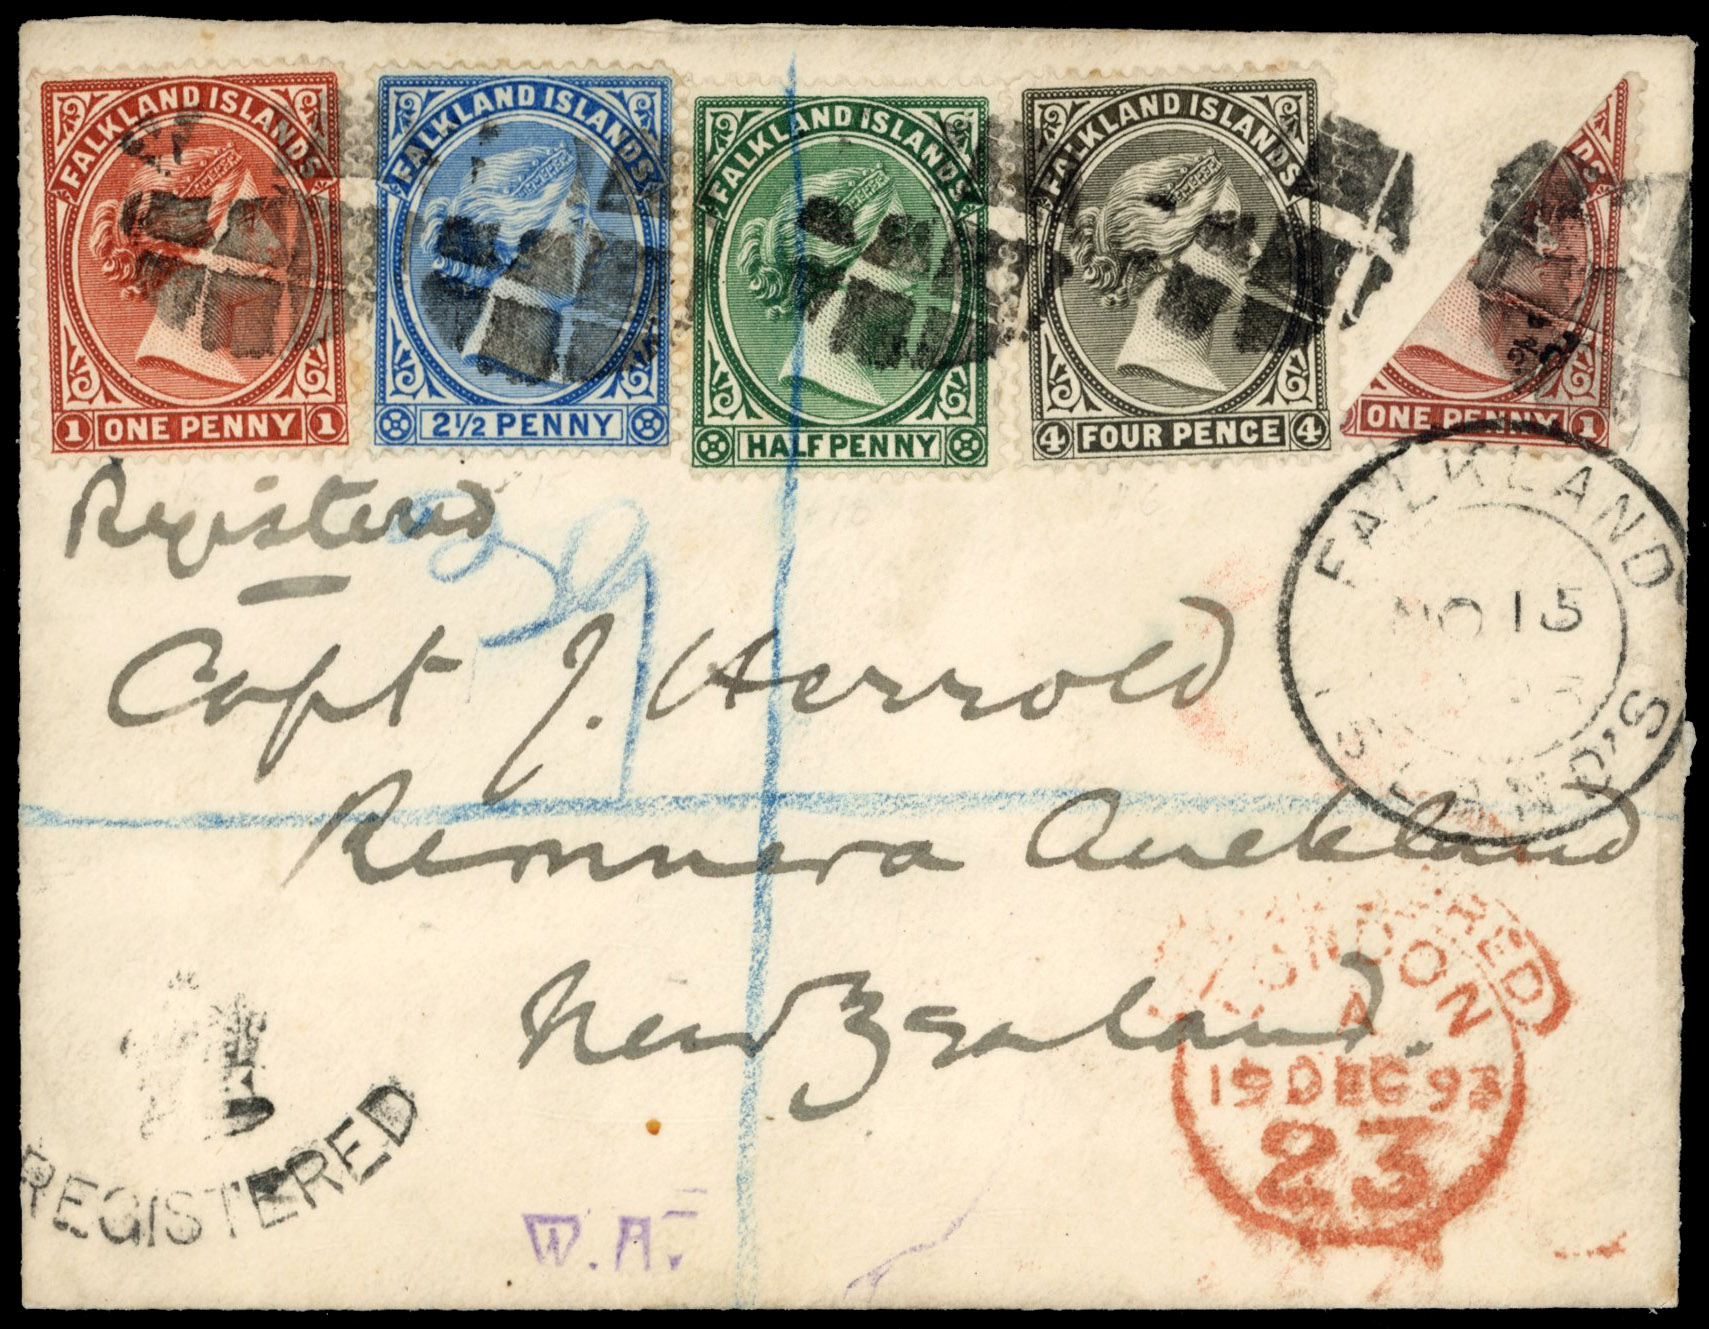 FALKLAND ISLANDS
1 ONE PENNY 1
FALKLAND ISLANDS
2½ PENNY
FALKLAND ISLANDS
HALFPENNY
FALKLAND ISLANDS
4 FOUR PENCE 4
DS
ONE PENNY 1
Registered
Capt J. Herrold
Remuera Auckland
New Zealand.
FALKLAND
NO 15
REGISTERED
W.A.
LONDON
A
19 DEC 93
23